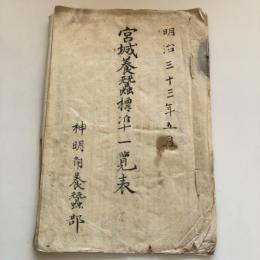 明治三十三年五月
宮城養蚕標準一覧表
神明角養蠶部